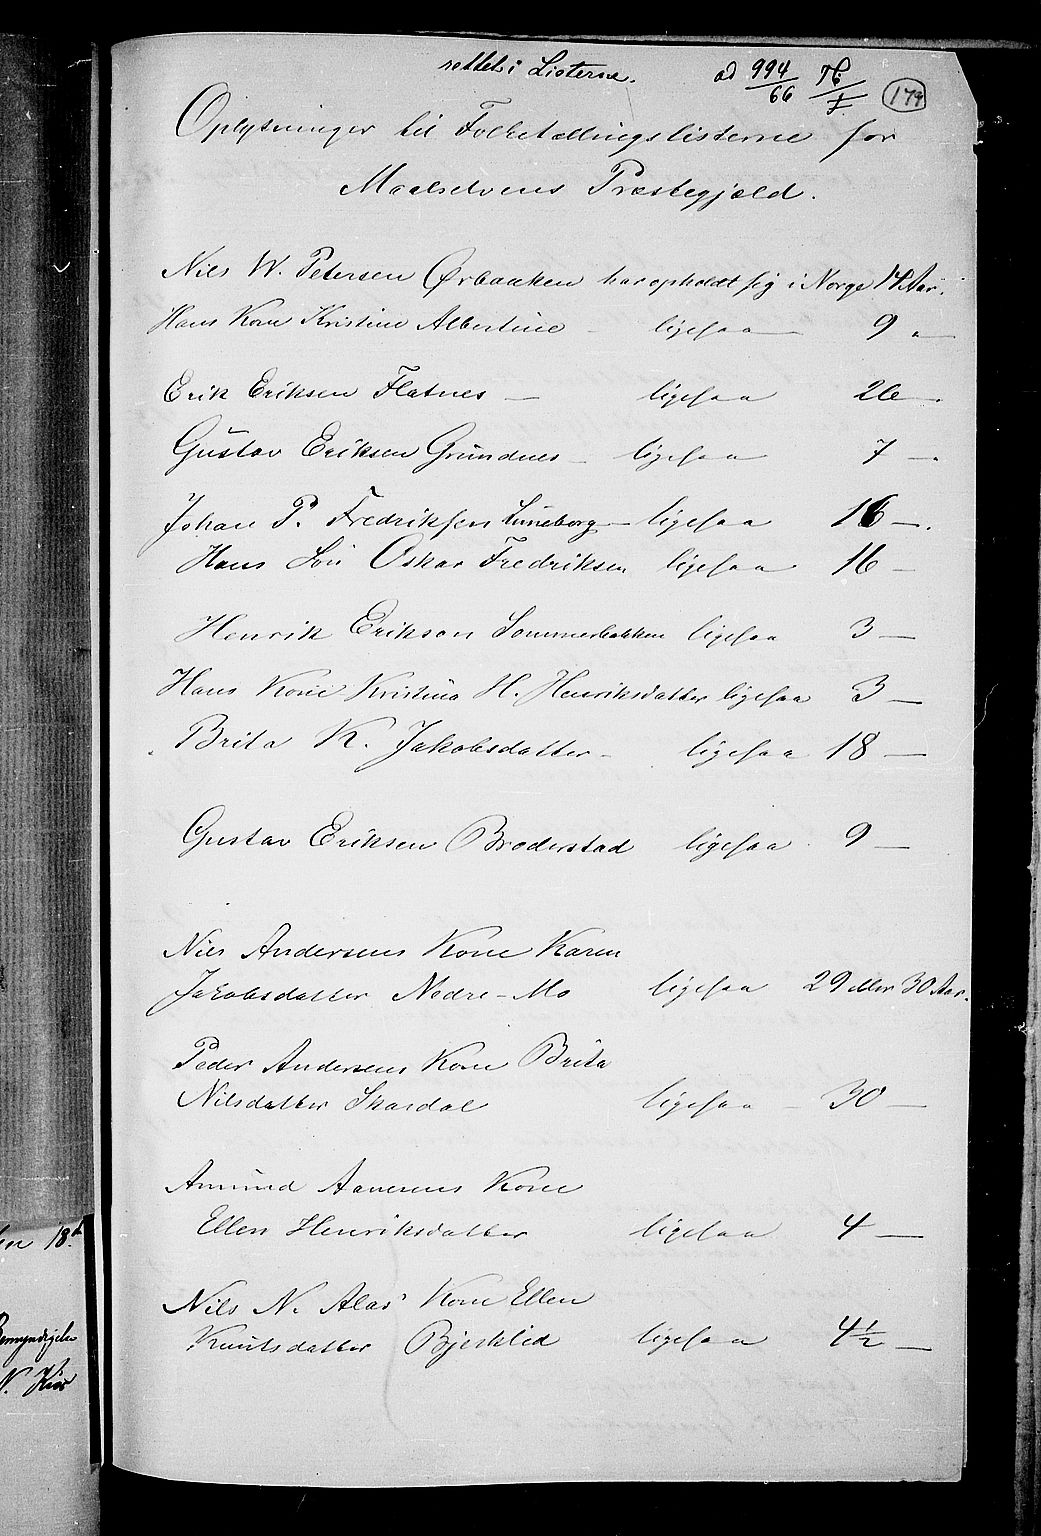 rettet i Listerne. ad 994/66 76/I 179
Oplysninger til Folketællingslisterne for
Maalselvens Præstegjæld.
Nils W. Petersen Ørbakken har opholdt sig i Norge 14 Aar.
Hans Kone Kristine Albertine - ligesaa — 9 "
Erik Eriksen Flatnes — ligesaa 26 —.
Gustav Eriksen Grundnes - ligesaa 7 —.
Johan P. Fredriksen Luneborg - ligesaa 16 —.
Hans Søn Oskar Fredriksen ligesaa 16 -
Henrik Erikson Sommerbakken ligesaa 3 —
Hans Kone Kristina H. Henriksdatter ligesaa 3 —
Brita K. Jakobsdatter - ligesaa 18 —
Gustav Eriksen Broderstad ligesaa 9 —
Nils Andersens Kone Karen
Jakobsdatter Nedre-Mo ligesaa 29 eller 30 Aar.
Peder Andersens Kone Brita
Nilsdatter Skardal ligesaa - 30 —
Amund Aanesens Kone
Ellen Henriksdatter ligesaa 4 —
Nils N. Alas' Kone Ellen
Knutsdatter Bjerklid ligesaa 4½ —
18
Bemyndigelse
N. Kiær